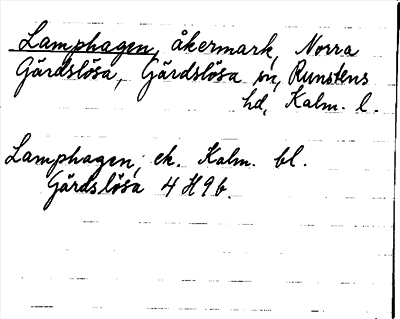 Lamphagen, åkermark, Norra
Gärdslösa, Gärdslösa sn, Runstens
hd, Kalm. l.
Lamphagen; ek. Kalm. bl.
Gärdslösa 4 H 9 b.